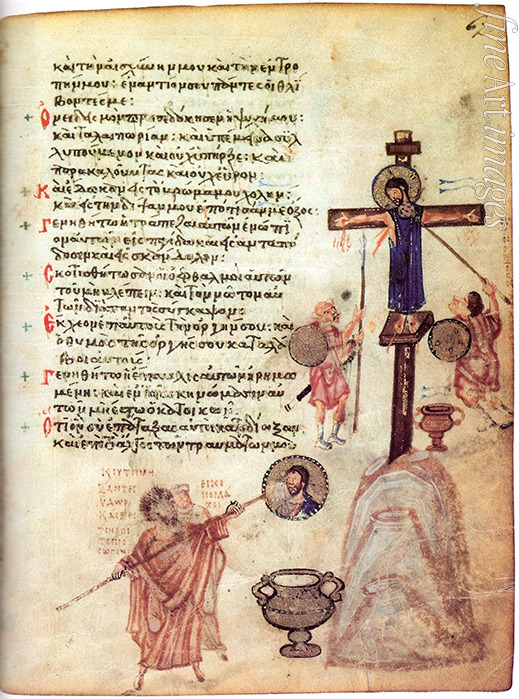 καὶ τὴν αἰσχύνην μου καὶ τὴν ἐντρο
πήν μου: ἐναντίον σου πάντες οἱ θλί
βοντες με:
Ὀνειδισμὸν προσεδόκησεν ἡ ψυχή μου:
καὶ ταλαιπωρίαν: καὶ ὑπέμεινα συλ
λυπούμενον καὶ οὐχ ὑπῆρξε: καὶ
παρακαλοῦντας καὶ οὐχ εὗρον:
Καὶ ἔδωκαν εἰς τὸ βρῶμα μου χολὴν:
καὶ εἰς τὴν δίψαν μου ἐπότισάν με ὄξος:
Γενηθήτω ἡ τράπεζα αὐτῶν ἐνώπι
ον αὐτῶν εἰς παγίδα καὶ εἰς ἀνταπό
δοσιν καὶ εἰς σκάνδαλον:
Σκοτισθήτωσαν οἱ ὀφθαλμοὶ αὐτῶν
τοῦ μὴ βλέπειν: καὶ τὸν νῶτον αὐ
τῶν διαπαντὸς συγκαμψον:
Ἔκχεον ἐπ' αὐτοὺς τὴν ὀργήν σου: καὶ
ὁ θυμὸς τῆς ὀργῆς σου καταλά
βοι αὐτούς:
Γενηθήτω ἡ ἔπαυλις αὐτῶν ἠρημω
μένη: καὶ ἐν τοῖς σκηνώμασιν αὐ
τῶν μὴ ἔστω ὁ κατοικῶν:
Ὅτι ὃν σὺ ἐπάταξας αὐτοὶ κατεδίωξαν
καὶ ἐπὶ τὸ ἄλγος τῶν τραυμάτων μου
fineartimages